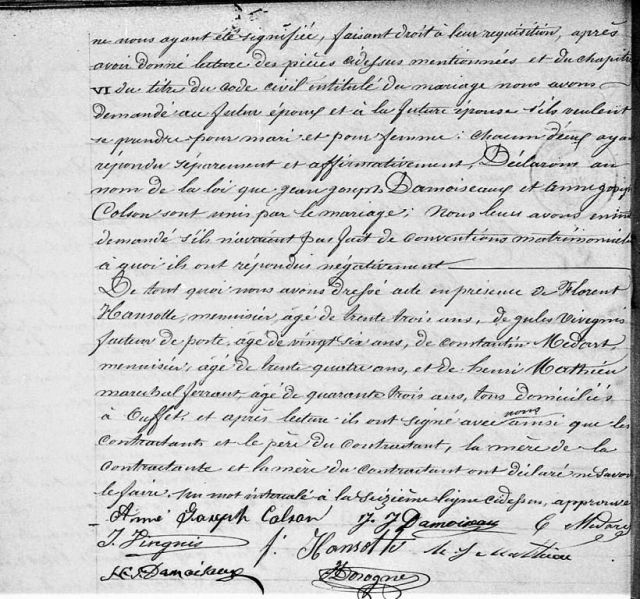 ne nous ayant été signifiée, faisant droit à leur requisition, après
avoir donné lecture des pièces cidessus mentionnées et du chapitre
VI du titre du code civil intitulé du mariage nous avons
demandé au futur époux et à la future épouse s'ils veulent
se prendre pour mari et pour femme: chacun d'eux ayant
répondu séparement et affirmativement, Déclarons au
nom de la loi que jean joseph Damoiseaux et anne joseph
Colson sont unis par le mariage; Nous leurs avons ensuite
demandé s'ils n'avaient pas fait de conventions matrimoniales
à quoi ils ont répondus négativement
De tout quoi nous avons dressé acte en présence de Florent
Hansotte, menuisier, âgé de trente trois ans, de jules Vivegnis
facteur de poste, âgé de vingt six ans, de constantin Medart,
menuisier, âgé de trente quatre ans, et de henri Mathieu
marechal ferrant, âgé de quarante trois ans, tous domiciliés
à Ouffet; et après lecture ils ont signé avec nous ainsi que les
contractants et le père du contractant, la mère de la
contractante et la mère du contractant ont déclaré ne savoir
le faire. Un mot intercalé à la seizième ligne cidessus, approuvé
Anne Joseph Colson J. J. Damoiseau C Medart
J. Vivegnis f. Hansotte
Damoiseaux